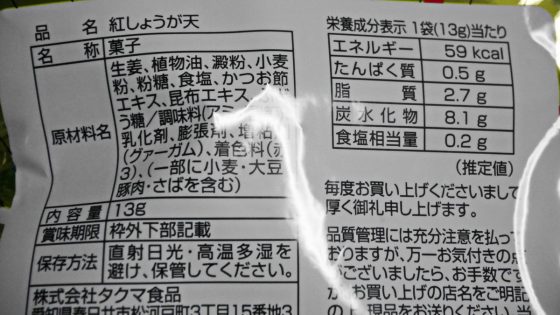 品名 紅しょうが天
名称 菓子
原材料名
生姜、植物油、澱粉、小麦
粉、粉糖、食塩、かつお節
エキス、昆布エキス、
う糖/調味料(アミ
乳化剤、膨張剤、増粘
(グァーガム)、着色料(赤
3)、(一部に小麦・大豆
豚肉・さばを含む)
内容量 13g
賞味期限 枠外下部記載
保存方法 直射日光・高温多湿を
避け、保管してください。
株式会社タクマ食品
愛知県春日井市松河戸町3丁目15番地3
栄養成分表示 1袋(13g)当たり
エネルギー 59 kcal
たんぱく質 0.5 g
脂質 2.7 g
炭水化物 8.1 g
食塩相当量 0.2 g
(推定値)
毎度お買い上げくださいまして
厚く御礼申し上げます。
品質管理には充分注意を払って
おりますが、万一お気付きの点
ございましたら、お手数です
お買い上げの店名をご明記
現品をお送りください。当